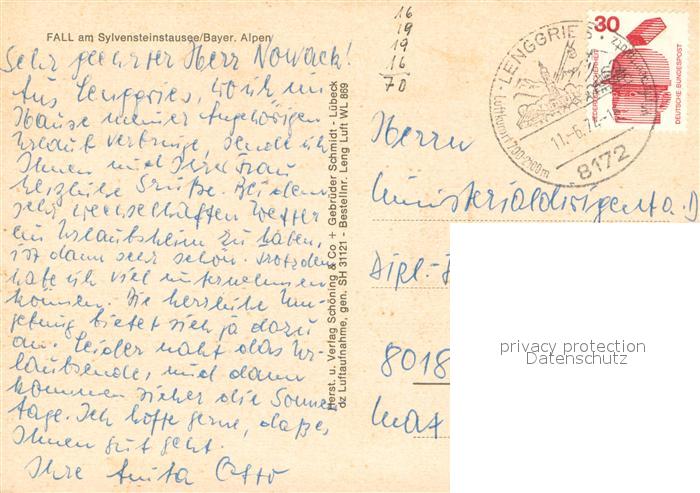 FALL am Sylvensteinstausee/Bayer. Alpen
Sehr geehrter Herr Nowack!
Aus Lenggries, wo ich im
Hause meiner Angehörigen
Urlaub verbringe, sende ich
Ihnen und Ihrer Frau
herzliche Grüße. Bei dem
sehr wechselhaften Wetter
ein Urlaubsheim zu haben,
ist dann sehr schön. Trotzdem
habe ich viel unternehmen
können. Die herrliche Um-
gebung bietet sich ja dazu
an. Leider naht das Ur-
laubsende, und dann
kommen sicher die Sonnen-
tage. Ich hoffe gerne, daß es
Ihnen gut geht.
Ihre Anita Otto
Herst. u. Verlag Schöning & Co + Gebrüder Schmidt - Lübeck
dz Luftaufnahme, gen. SH 31121 - Bestellnr. Leng Luft WL 869
16
19
19
16
70
LENGGRIES
Luftkurort 700-2100m
11.-6.74.-1
8172
30
DEUTSCHE BUNDESPOST
Herrn
Ministerialdirigent a.D
Dipl.-
8018
Max
privacy protection
Datenschutz